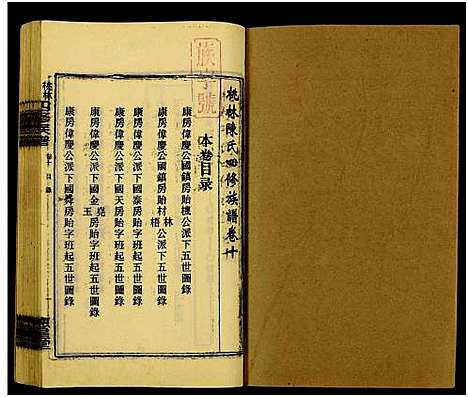 桃林陳氏四修族譜卷十
族字號
本卷目录
康房偉慶公國鎮房貽機公派下五世圖錄
康房偉慶公國鎮房貽材林梧公派下五世圖錄
康房偉慶公派下國泰房貽字班起五世圖錄
康房偉慶公派下國天房貽字班起五世圖錄
康房偉慶公派下國金堯玉房貽字班起五世圖錄
康房偉慶公派下國舜房貽字班起五世圖錄